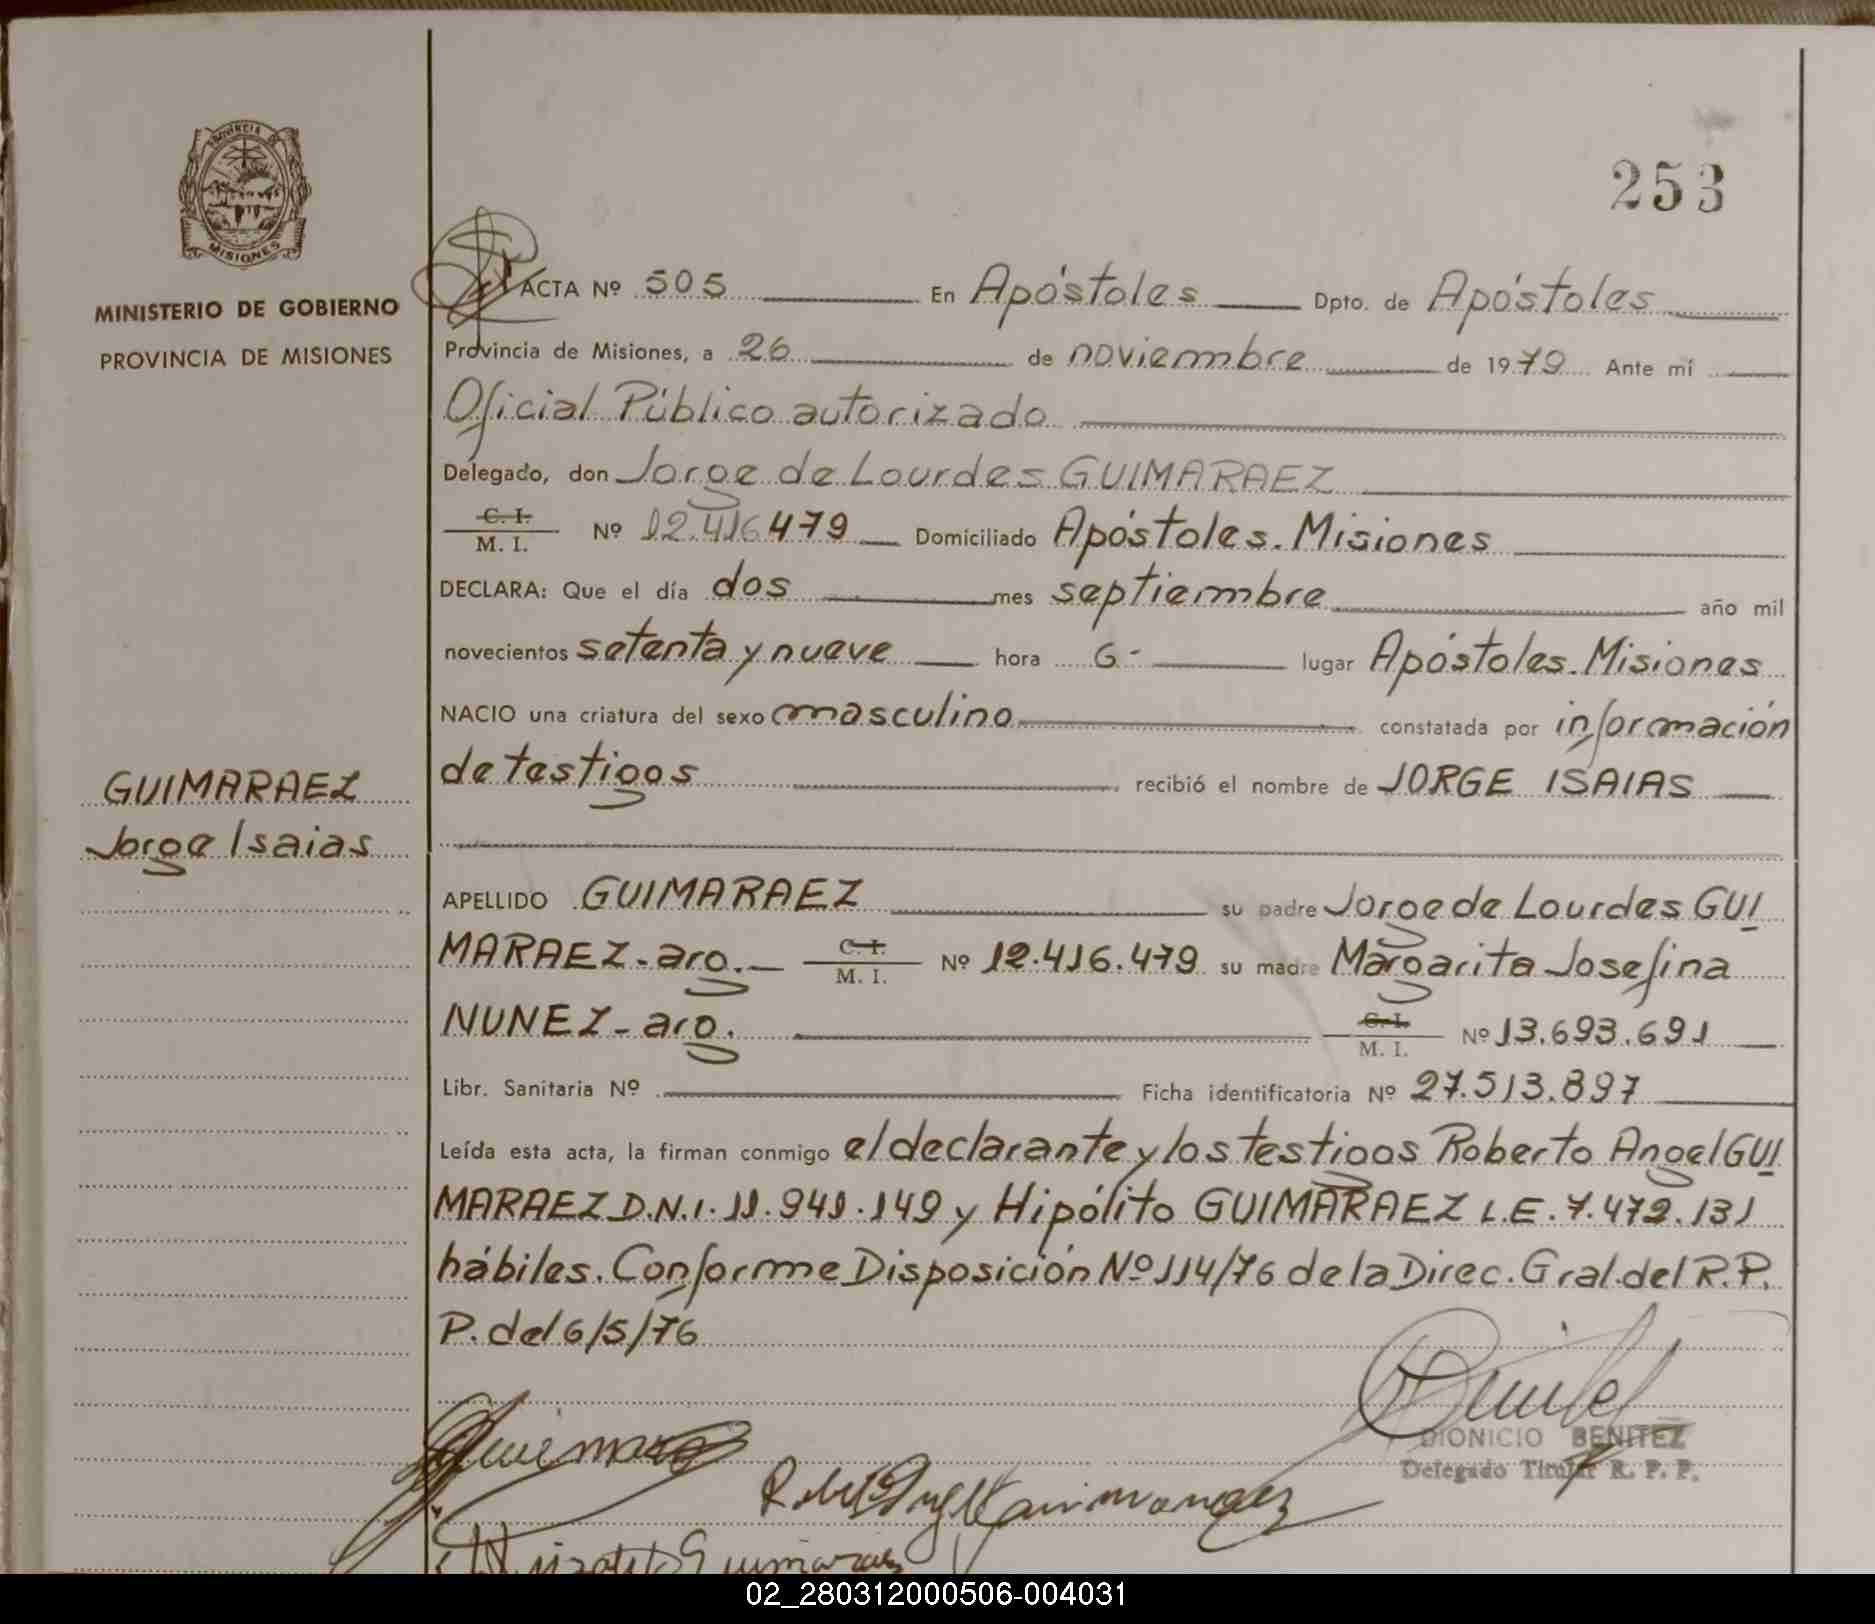 253
PROVINCIA DE
MISIONES
MINISTERIO DE GOBIERNO
PROVINCIA DE MISIONES
ACTA Nº 505 En Apóstoles Dpto. de Apóstoles
Provincia de Misiones, a 26 de noviembre de 1979 Ante mí
Oficial Público autorizado
Delegado, don Jorge de Lourdes GUIMARAEZ
C. I.
M. I. Nº 12.416479 Domiciliado Apóstoles. Misiones
DECLARA: Que el día dos mes septiembre año mil
novecientos setenta y nueve hora 6- lugar Apóstoles. Misiones
NACIO una criatura del sexo masculino constatada por información
de testigos recibió el nombre de JORGE ISAIAS
GUIMARAEZ
Jorge Isaias
APELLIDO GUIMARAEZ su padre Jorge de Lourdes GUI
MARAEZ-arg.- C. I. M. I. Nº 12.416.479 su madre Margarita Josefina
NUNEZ-arg. C. I. M. I. Nº 13.693.691
Libr. Sanitaria Nº Ficha identificatoria Nº 27.513.897
Leída esta acta, la firman conmigo el declarante y los testigos Roberto Angel GUI
MARAEZ D.N.I. 11.941.149 y Hipólito GUIMARAEZ L.E. 7.472.131
hábiles. Conforme Disposición Nº 114/76 de la Direc. Gral. del R.P.
P. del 6/5/76
DIONICIO BENITEZ
Delegado Titular R. P. P.
02_280312000506-004031